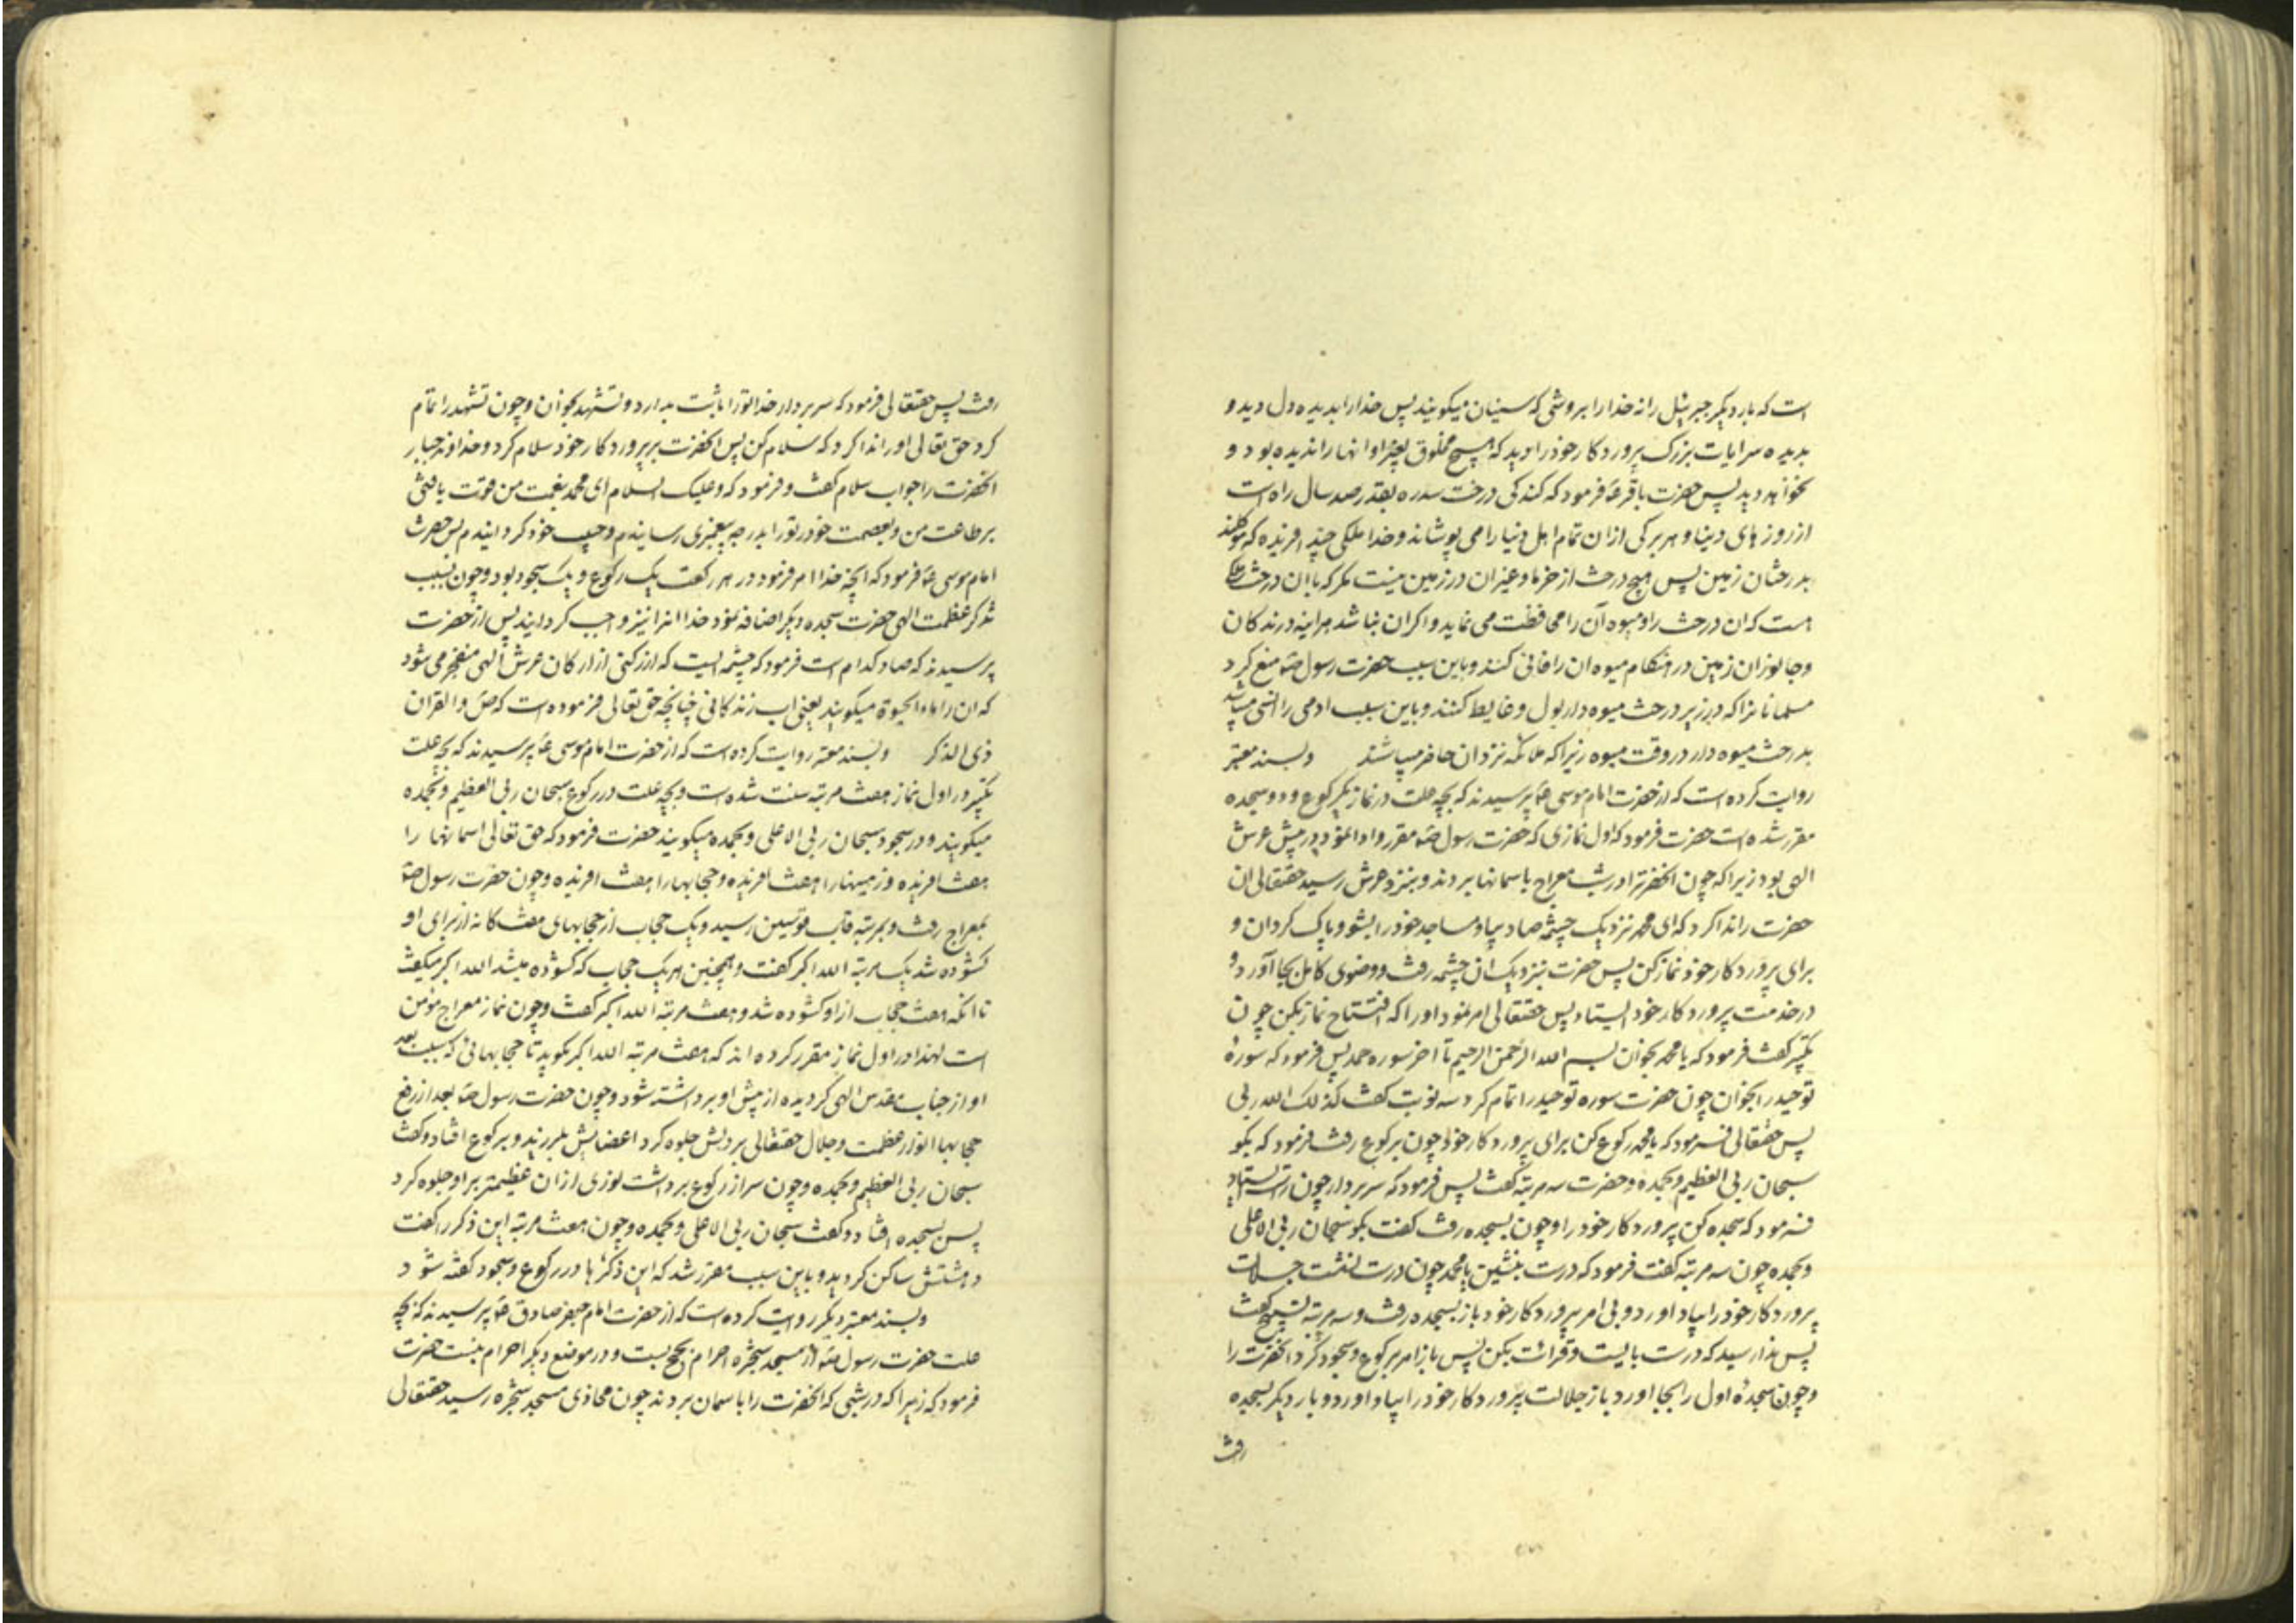 است که بار دیکر جبرئیل را نه خدا را بروشی که سنیان میکویند پس خدا را بدیده دل دید و
بدیده سر ایات بزرک پروردکار خود را دید که هیچ مخلوق بغیر او انها را ندیده بود و
نخواهد دید پس حضرت باقر ع فرمود که کندکی درخت سدره بقدر صد سال راه است
از روزهای دنیا و هر برکی از ان تمام اهل دنیا را می پوشاند و خدا ملکی چند افریده که موکلند
بدرختان زمین پس هیچ درخت از خرما و غیر ان در زمین نیست مکر که با ان درخت ملکی
هست که ان درخت را و میوه آن را محافظت می نماید و اکر ان نباشد هراینه درندکان
و جانوران زمین در هنکام میوه ان را فانی کنند و باین سبب حضرت رسول ص منع کرد
مسلمانانرا که در زیر درخت میوه دار بول و غایط کنند و باین سبب ادمی را انسی میباشد
بدرخت میوه دار در وقت میوه زیرا که ملائکه نزد ان حاضر میباشند و بسند معتبر
روایت کرده است که از حضرت امام موسی ع پرسیدند که بچه علت در نماز یکرکوع و دو سجده
مقرر شده است حضرت فرمود که اول نمازی که حضرت رسول ص مقرر و ادا نمود در پیش عرش
الهی بود زیرا که چون انحضرترا در شب معراج باسمانها بردند و بنزد عرش رسید حقتعالی ان
حضرت را ندا کرد که ای محمد نزدیک چشمه صاد بیا و مساجد خود را بشو و پاک کردان و
برای پروردکار خود نماز کن پس حضرت بنزدیک ان چشمه رفت و وضوی کامل بجا آورد و
در خدمت پروردکار خود ایستاد پس حقتعالی امر نمود او را که افتتاح نماز بکن چون
تکبیر کفت فرمود که یا محمد بخوان بسم الله الرحمن الرحیم تا اخر سوره حمد پس فرمود که سوره
توحید را بخوان چون حضرت سوره توحید را تمام کرد سه نوبت کفت کذلک الله ربی
پس حقتعالی فرمود که یا محمد رکوع کن برای پروردکار خود چون برکوع رفت فرمود که بکو
سبحان ربی العظیم و بحمده و حضرت سه مرتبه کفت پس فرمود که سر بردار چون راست ایستاد
فرمود که سجده کن پروردکار خود را و چون بسجده رفت کفت بکو سبحان ربی الاعلی
و بحمده چون سه مرتبه کفت فرمود که درست بنشین یا محمد چون درست نشست جلالت
پروردکار خود را بیاد اورد و بی امر پروردکار خود باز بسجده رفت و سه مرتبه تسبیح کفت
پس ندا رسید که درست بایست و قرائت بکن پس باز امر برکوع و سجود کرد انحضرت را
و چون سجده اول را بجا اورد باز جلالت پروردکار خود را بیاد اورد و بار دیکر بسجده
رفت
رفت پس حقتعالی فرمود که سر بردار خدا تو را ثابت بدارد و تشهد بخوان و چون تشهد را تمام
کرد حق تعالی او را ندا کرد که سلام کن پس انحضرت بر پروردکار خود سلام کرد و خداوند جبار
انحضرت را جواب سلام کفت و فرمود که و علیک السلام ای محمد بنعمت من قوت یافتی
بر طاعت من و بعصمت خود تو را بدرجه پیغمبری رسانیدم و حبیب خود کردانیدم پس حضرت
امام موسی ع فرمود که انچه خدا امر فرمود در هر رکعت یک رکوع و یک سجود بود و چون بسبب
تذکر عظمت الهی حضرت سجده دیکر اضافه نمود خدا انرا نیز واجب کردانید پس از حضرت
پرسیدند که صاد کدام است فرمود که چشمه ایست که از رکنی از ارکان عرش الهی منفجر می شود
که ان را ماء الحیوة میکویند یعنی اب زندکانی چنانچه حق تعالی فرموده است که ص و القران
ذی الذکر و بسند معتبر روایت کرده است که از حضرت امام موسی ع پرسیدند که بچه علت
تکبیر در اول نماز هفت مرتبه سنت شده است و بچه علت در رکوع سبحان ربی العظیم و بحمده
میکویند و در سجود سبحان ربی الاعلی و بحمده میکویند حضرت فرمود که حق تعالی اسمانها را
هفت افریده و زمینها را هفت افریده و حجابها را هفت افریده و چون حضرت رسول ص
بمعراج رفت و بمرتبه قاب قوسین رسید و یک حجاب از حجابهای هفت کانه از برای او
کشوده شد یک مرتبه الله اکبر کفت و همچنین هر یک حجاب که کشوده میشد الله اکبر میکفت
تا انکه هفت حجاب از او کشوده شد و هفت مرتبه الله اکبر کفت و چون نماز معراج مؤمن
است لهذا در اول نماز مقرر کرده اند که هفت مرتبه الله اکبر بکوید تا حجابهائی که سبب بعد
او از جناب مقدس الهی کردیده از پیش او برداشته شود و چون حضرت رسول ص بعد از رفع
حجابها انوار عظمت و جلال حقتعالی بر دلش جلوه کرد اعضایش بلرزید و برکوع افتاد و کفت
سبحان ربی العظیم و بحمده و چون سر از رکوع برداشت نوری از ان عظیمتر بر او جلوه کرد
پس بسجده افتاد و کفت سبحان ربی الاعلی و بحمده و چون هفت مرتبه این ذکر را کفت
دهشتش ساکن کردید و باین سبب مقرر شد که این ذکرها در رکوع و سجود کفته شود
و بسند معتبر دیکر روایت کرده است که از حضرت امام جعفر صادق ع پرسیدند که بچه
علت حضرت رسول ص از مسجد شجره احرام بحج بست و در موضع دیکر احرام نبست حضرت
فرمود که زیرا که در شبی که انحضرت را باسمان بردند چون محاذی مسجد شجره رسید حقتعالی